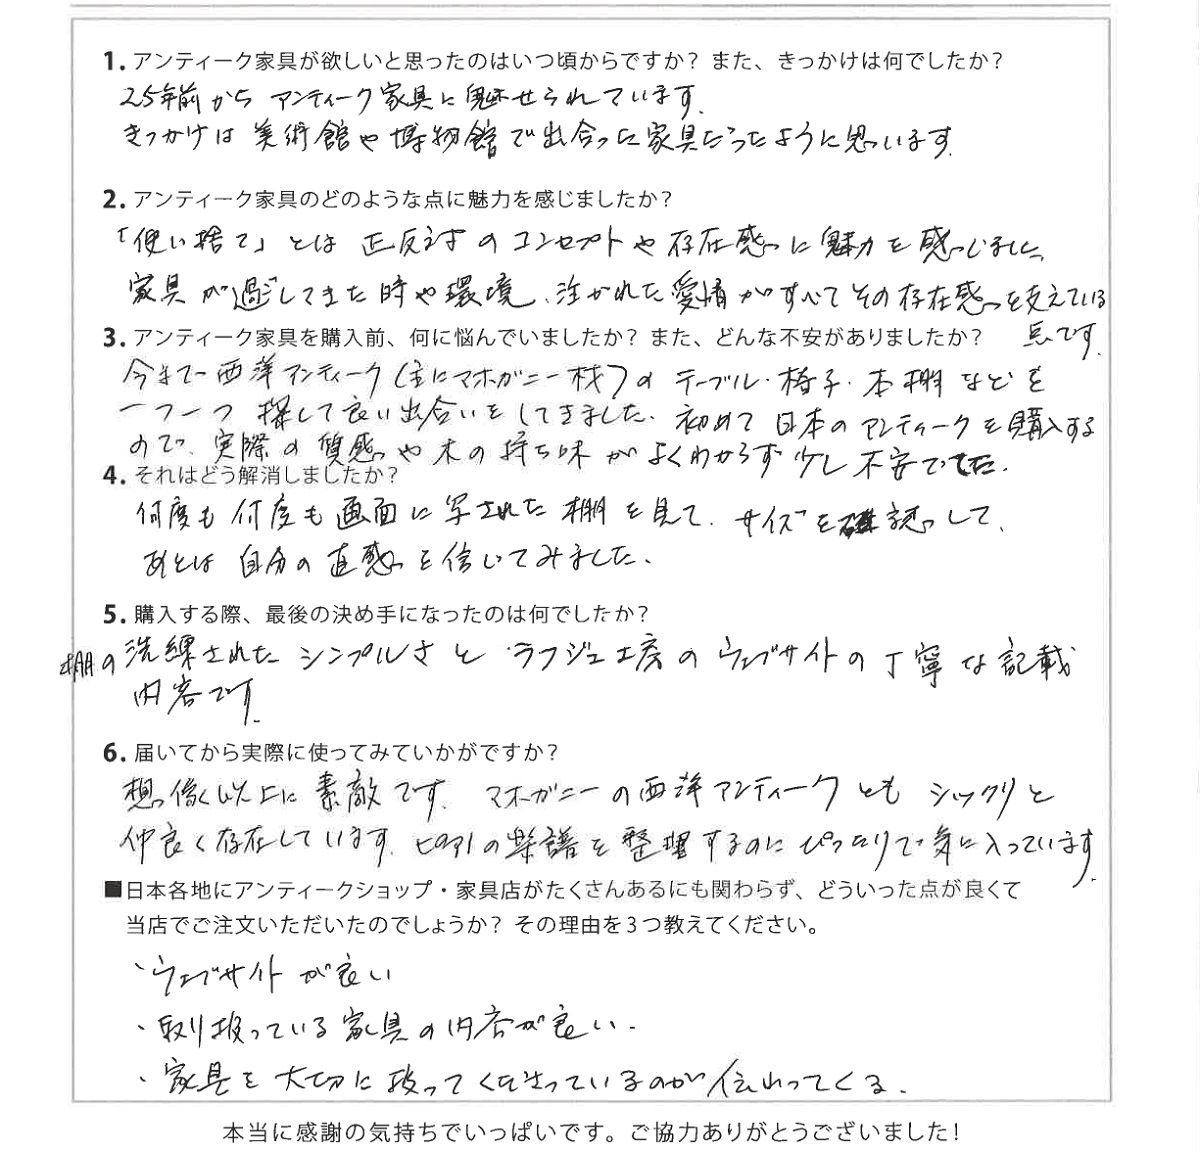 1. アンティーク家具が欲しいと思ったのはいつ頃からですか? また、きっかけは何でしたか?
25年前から アンティーク家具に魅せられています。
きっかけは 美術館や博物館で出合った家具だったように思います。
2. アンティーク家具のどのような点に魅力を感じましたか?
「使い捨て」とは 正反対のコンセプトや存在感に魅力を感じました。
家具が過ごしてきた時や環境、注がれた愛情がすべてその存在感を支えている
点です。
3. アンティーク家具を購入前、何に悩んでいましたか? また、どんな不安がありましたか?
今まで西洋アンティーク(主にマホガニー材)のテーブル・椅子・本棚などを
一つ一つ 探して良い出合いをしてきました。初めて日本のアンティークを購入する
ので、実際の質感や木の持ち味がよくわからず少し不安でした。
4. それはどう解消しましたか?
何度も何度も画面に写された棚を見て、サイズを確認して、
あとは自分の直感を信じてみました。
5. 購入する際、最後の決め手になったのは何でしたか?
棚の洗練されたシンプルさと ラフジュ工房のウェブサイトの丁寧な記載
内容です。
6. 届いてから実際に使ってみていかがですか?
想像以上に素敵です。マホガニーの西洋アンティークともシックリと
仲良く存在しています。ピアノの楽譜を整理するのにぴったりで気に入っています。
■日本各地にアンティークショップ・家具店がたくさんあるにも関わらず、どういった点が良くて
当店でご注文いただいたのでしょうか? その理由を3つ教えてください。
・ウェブサイトが良い
・取り扱っている家具の内容が良い。
・家具を大切に扱ってくださっているのが伝わってくる。
本当に感謝の気持ちでいっぱいです。ご協力ありがとうございました!